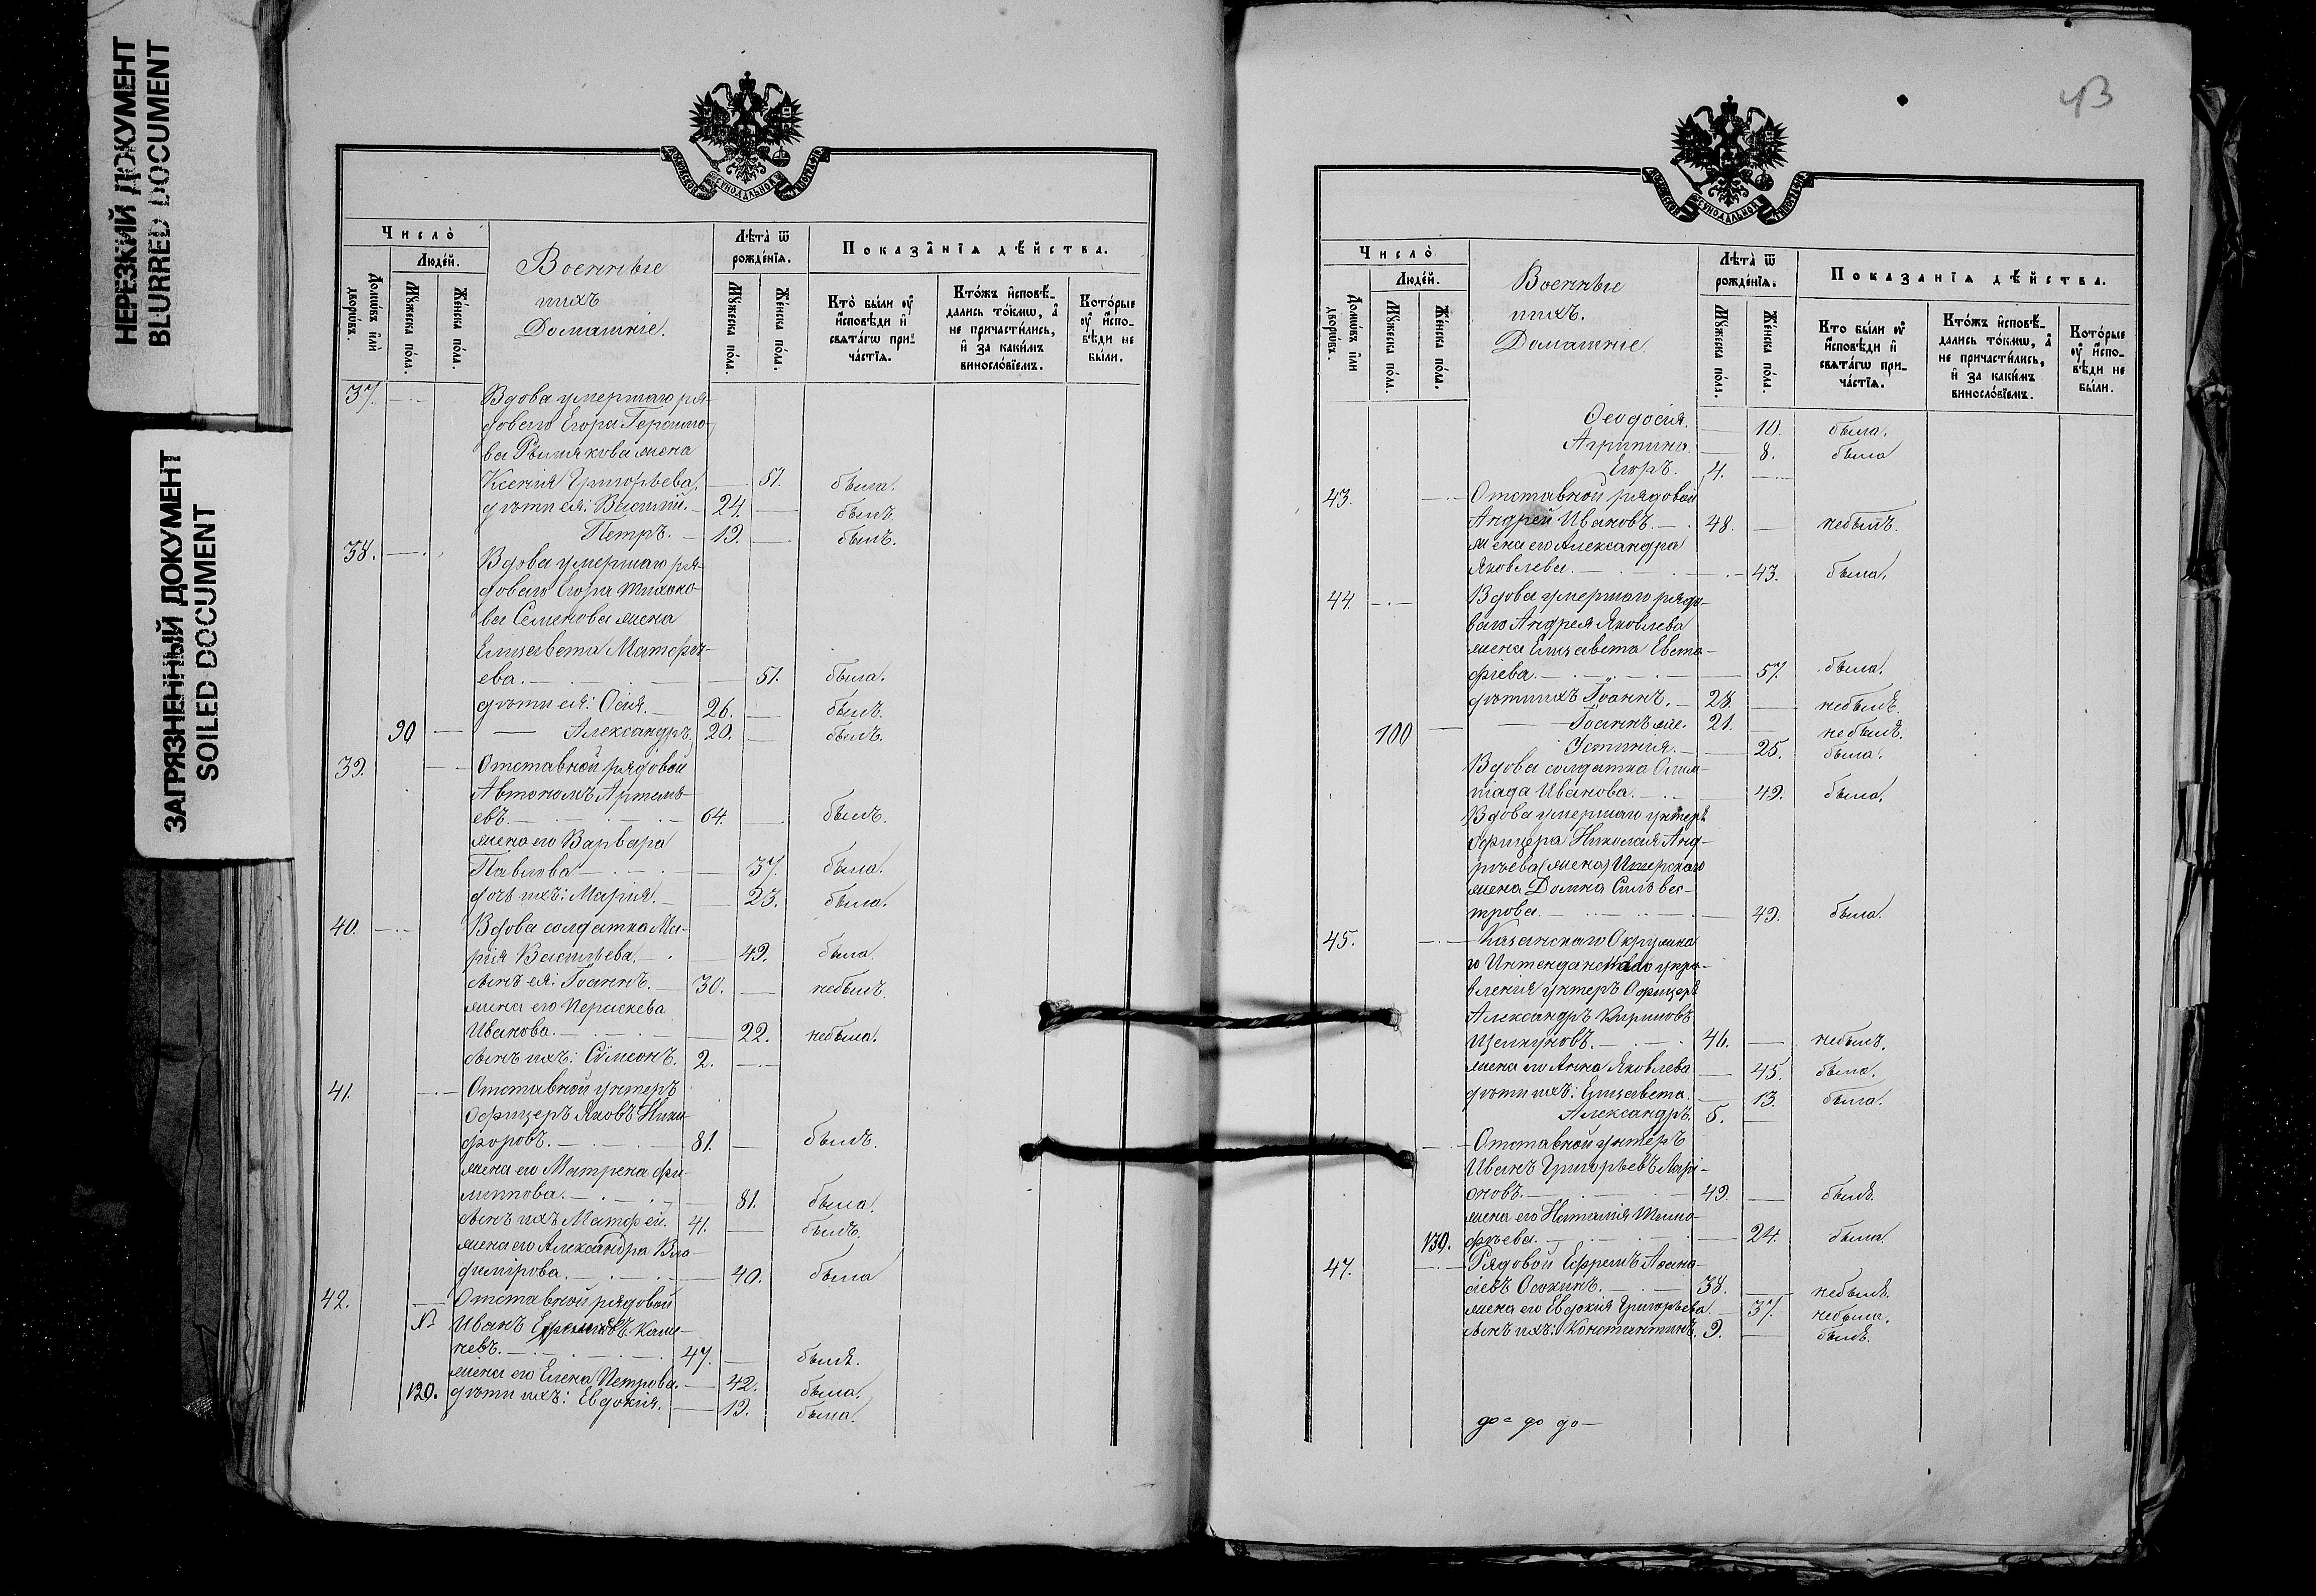 НЕРЕЗКИЙ ДОКУМЕНТ
BLURRED DOCUMENT
ЗАГРЯЗНЕННЫЙ ДОКУМЕНТ
SOILED DOCUMENT
МОСКОВСКОЙ СѴНОДАЛЬНОЙ ТИПОГРАФІИ
Число̀
Людей.
Домѡвъ и҆лѝ дворѡвъ.
Мꙋжеска пола.
Женска пола.
Военные
ихъ
Домашніе.
Лѣта̀ ѿ рожденїѧ.
Мꙋжеска пола.
Женска пола.
Показанїѧ дѣйства.
Кто̀ были оу҆ и҆сповѣди и҆ свѧтагѡ причастїѧ.
Кто́жъ и҆сповѣдались то́кмѡ, а҆ не причастились, и҆ за какимъ винословїемъ.
Которые оу҆ и҆сповѣди не были.
37. Вдова умершаго ря-
доваго Егора Герасимо-
ва жена
Ксенія Григорьева, 51. была.
дѣти ея: Василій. 24. былъ.
Петръ. 19. былъ.
38. Вдова умершаго ря-
доваго Егора Тихоно-
ва Семенова жена
Елисавета Матѳѣ-
ева. 51. была.
дѣти ея: Осія. 26. былъ.
90 Александръ. 20. былъ.
39. Отставной рядовой
Автономъ Артемь-
евъ. 64. былъ.
жена его Варвара
Павлова 37. была.
дочь ихъ: Марія. 23. была.
40. Вдова солдатка Ма-
рія Васильева. 49. была.
сынъ ея: Іоаннъ. 30. небылъ.
жена его Параскева
Иванова. 22. небыла.
сынъ ихъ: Сѵмеонъ. 2.
41. Отставной унтеръ
Офицеръ Яковъ Ники-
форовъ. 81. былъ.
жена его Матрена Фи-
липпова. 81. была.
сынъ ихъ Матѳей. 41. былъ.
жена его Александра Вла-
димірова. 40. была
42. Отставной рядовой
Иванъ
невъ. 47. былъ.
жена его Елена Петрова. 42. была.
120. дѣти ихъ: Евдокія. 19. была.
43
МОСКОВСКОЙ СѴНОДАЛЬНОЙ ТИПОГРАФІИ
Число̀
Людей.
Домѡвъ и҆лѝ дворѡвъ.
Мꙋжеска пола.
Женска пола.
Военные
ихъ.
Домашніе.
Лѣта̀ ѿ рожденїѧ.
Мꙋжеска пола.
Женска пола.
Показанїѧ дѣйства.
Кто были оу҆ и҆сповѣди и҆ свѧтагѡ причастїѧ.
Кто́жъ и҆сповѣдались то́кмѡ, а҆ не причастились, и҆ за какимъ винословїемъ.
Которые оу҆ и҆сповѣди не были.
Ѳеодосія. 10. была.
Агрипина. 8. была
Егоръ. 4.
43. Отставной рядовой
Андрей Ивановъ. 48. небылъ.
жена его Александра
Яковлева. 43. была.
44. Вдова умершаго рядо-
ваго Андрея Яковлева
жена Елисавета Евста-
фіева. 57. была.
дѣти ихъ Іоаннъ. 28. небылъ.
100 Іоаннъ же. 21. небылъ.
Устинія. 25. была.
Вдова солдатка Олим-
піада Иванова. 49. была.
Вдова умершаго унтеръ
Офицера Николая Анд-
рѣева (жена)
жена Домна Сильвес-
трова. 49. была.
45. Казанскаго Окружна
го Интендантскаго упра-
вленія унтеръ Офицеръ
Александръ Кириловъ
Щелкуновъ. 46. небылъ.
жена его Анна Яковлева 45. была.
дѣти ихъ: Елисавета. 13. была.
Александръ. 5.
Отставной унтеръ
Иванъ Григорьевъ Лари-
оновъ. 49. былъ.
жена его Наталія Тимо-
130. фѣева. 24. была.
47. Рядовой Ефремъ Аѳана-
сіевъ Осокинъ. 38. небылъ.
жена его Евдокія Григорьева. 37. небыла.
сынъ ихъ: Константинъ. 9. былъ.
до = до до —